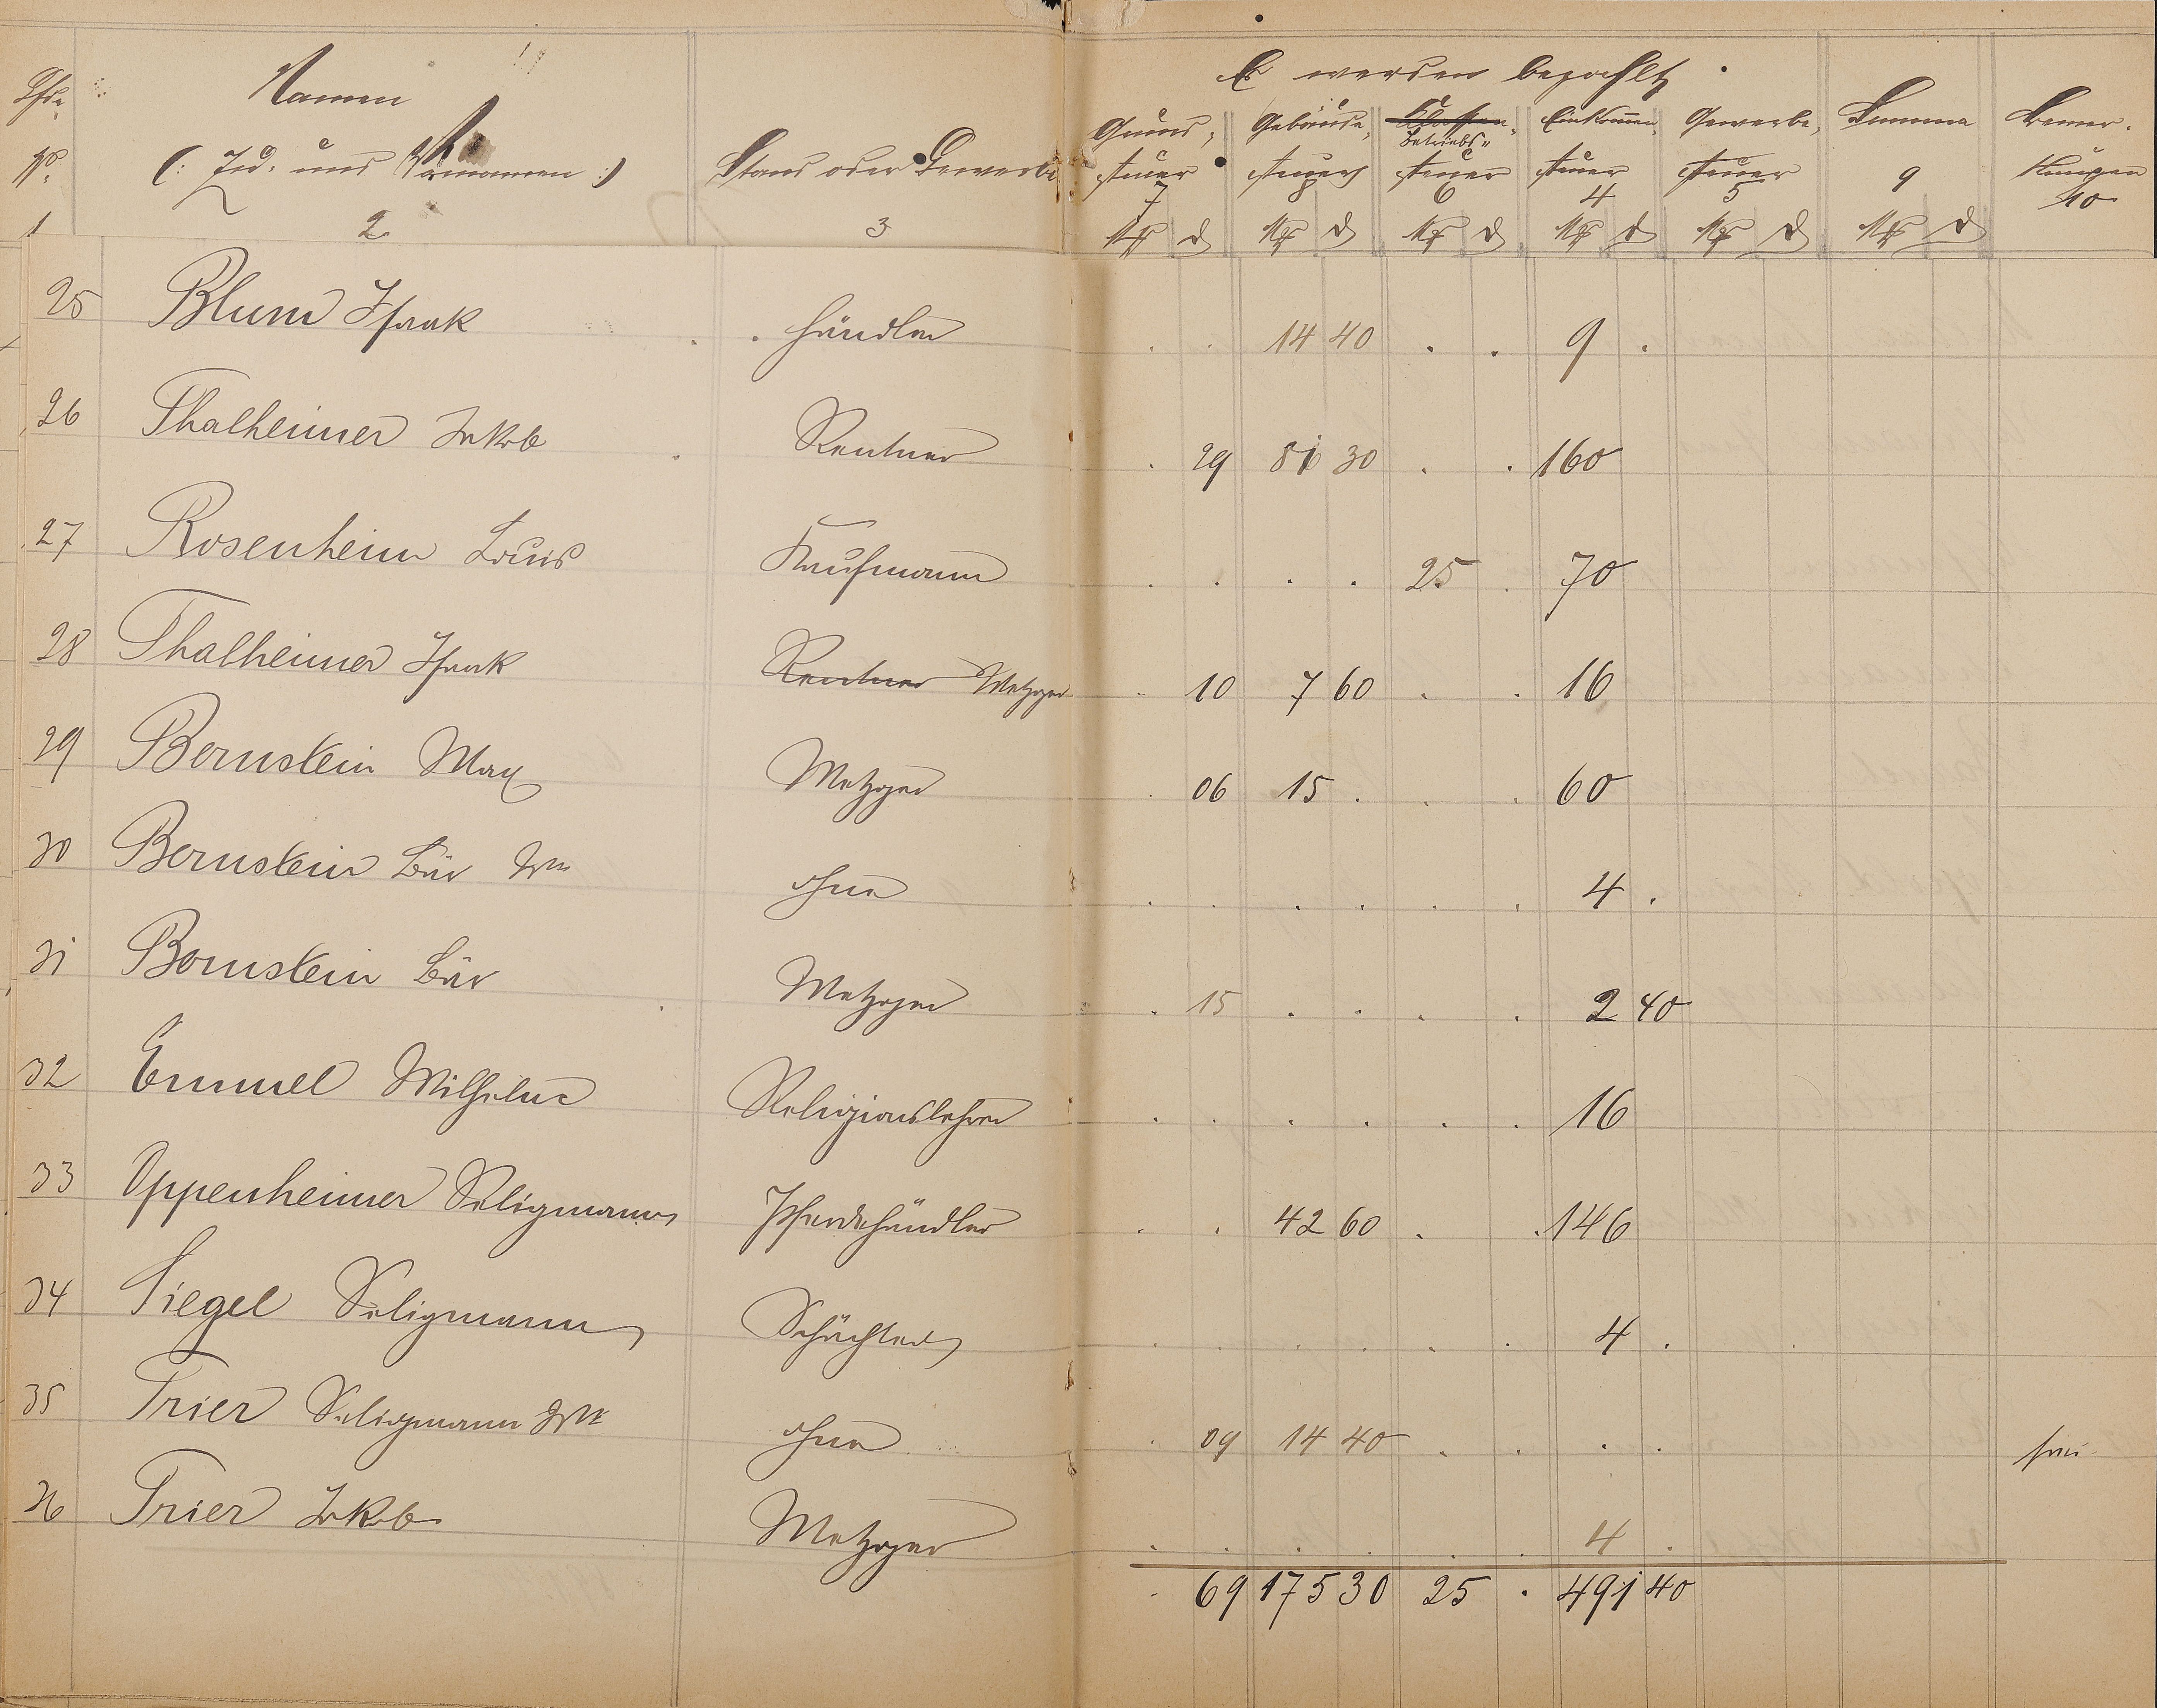 Namen
Es werden bezahlt
Lfde
No.
(: Zu- und Vornamen :)
Stand oder Gewerbe
Grund- Gebäude- Klassen- Einkommen- Gewerbe- Summa Bemer-
Betriebs-
steuer steuer steuer steuer steuer kungen
1 2 3 7 8 6 4 5 9 10
M d M d M d M d M d M d
25 Blum Isaak Händler . . 14 40 . . 9 .
26 Thalheimer Jakob Rentner . 29 81 30 . . 160
27 Rosenheim Louis Kaufmann . . . . 25 . 70
28 Thalheimer Isaak Rentner Metzger . 10 7 60 . . 16
29 Bernstein Max Metzger . 06 15 . . . 60
30 Bernstein Bär Wwe ohne . . . . . . 4 .
31 Bernstein Bär Metzger . 15 . . . . 2 40
32 Emmel Wilhelm Religionslehrer . . . . . . 16
33 Oppenheimer Seligmann Pferdehändler . . 42 60 . . 146
34 Siegel Seligmann Schächter . . . . . . 4 .
35 Trier Seligmann Wwe ohne . 09 14 40 . . . . frei
36 Trier Jakob Metzger . . . . . . 4 .
. 69 175 30 25 . 491 40